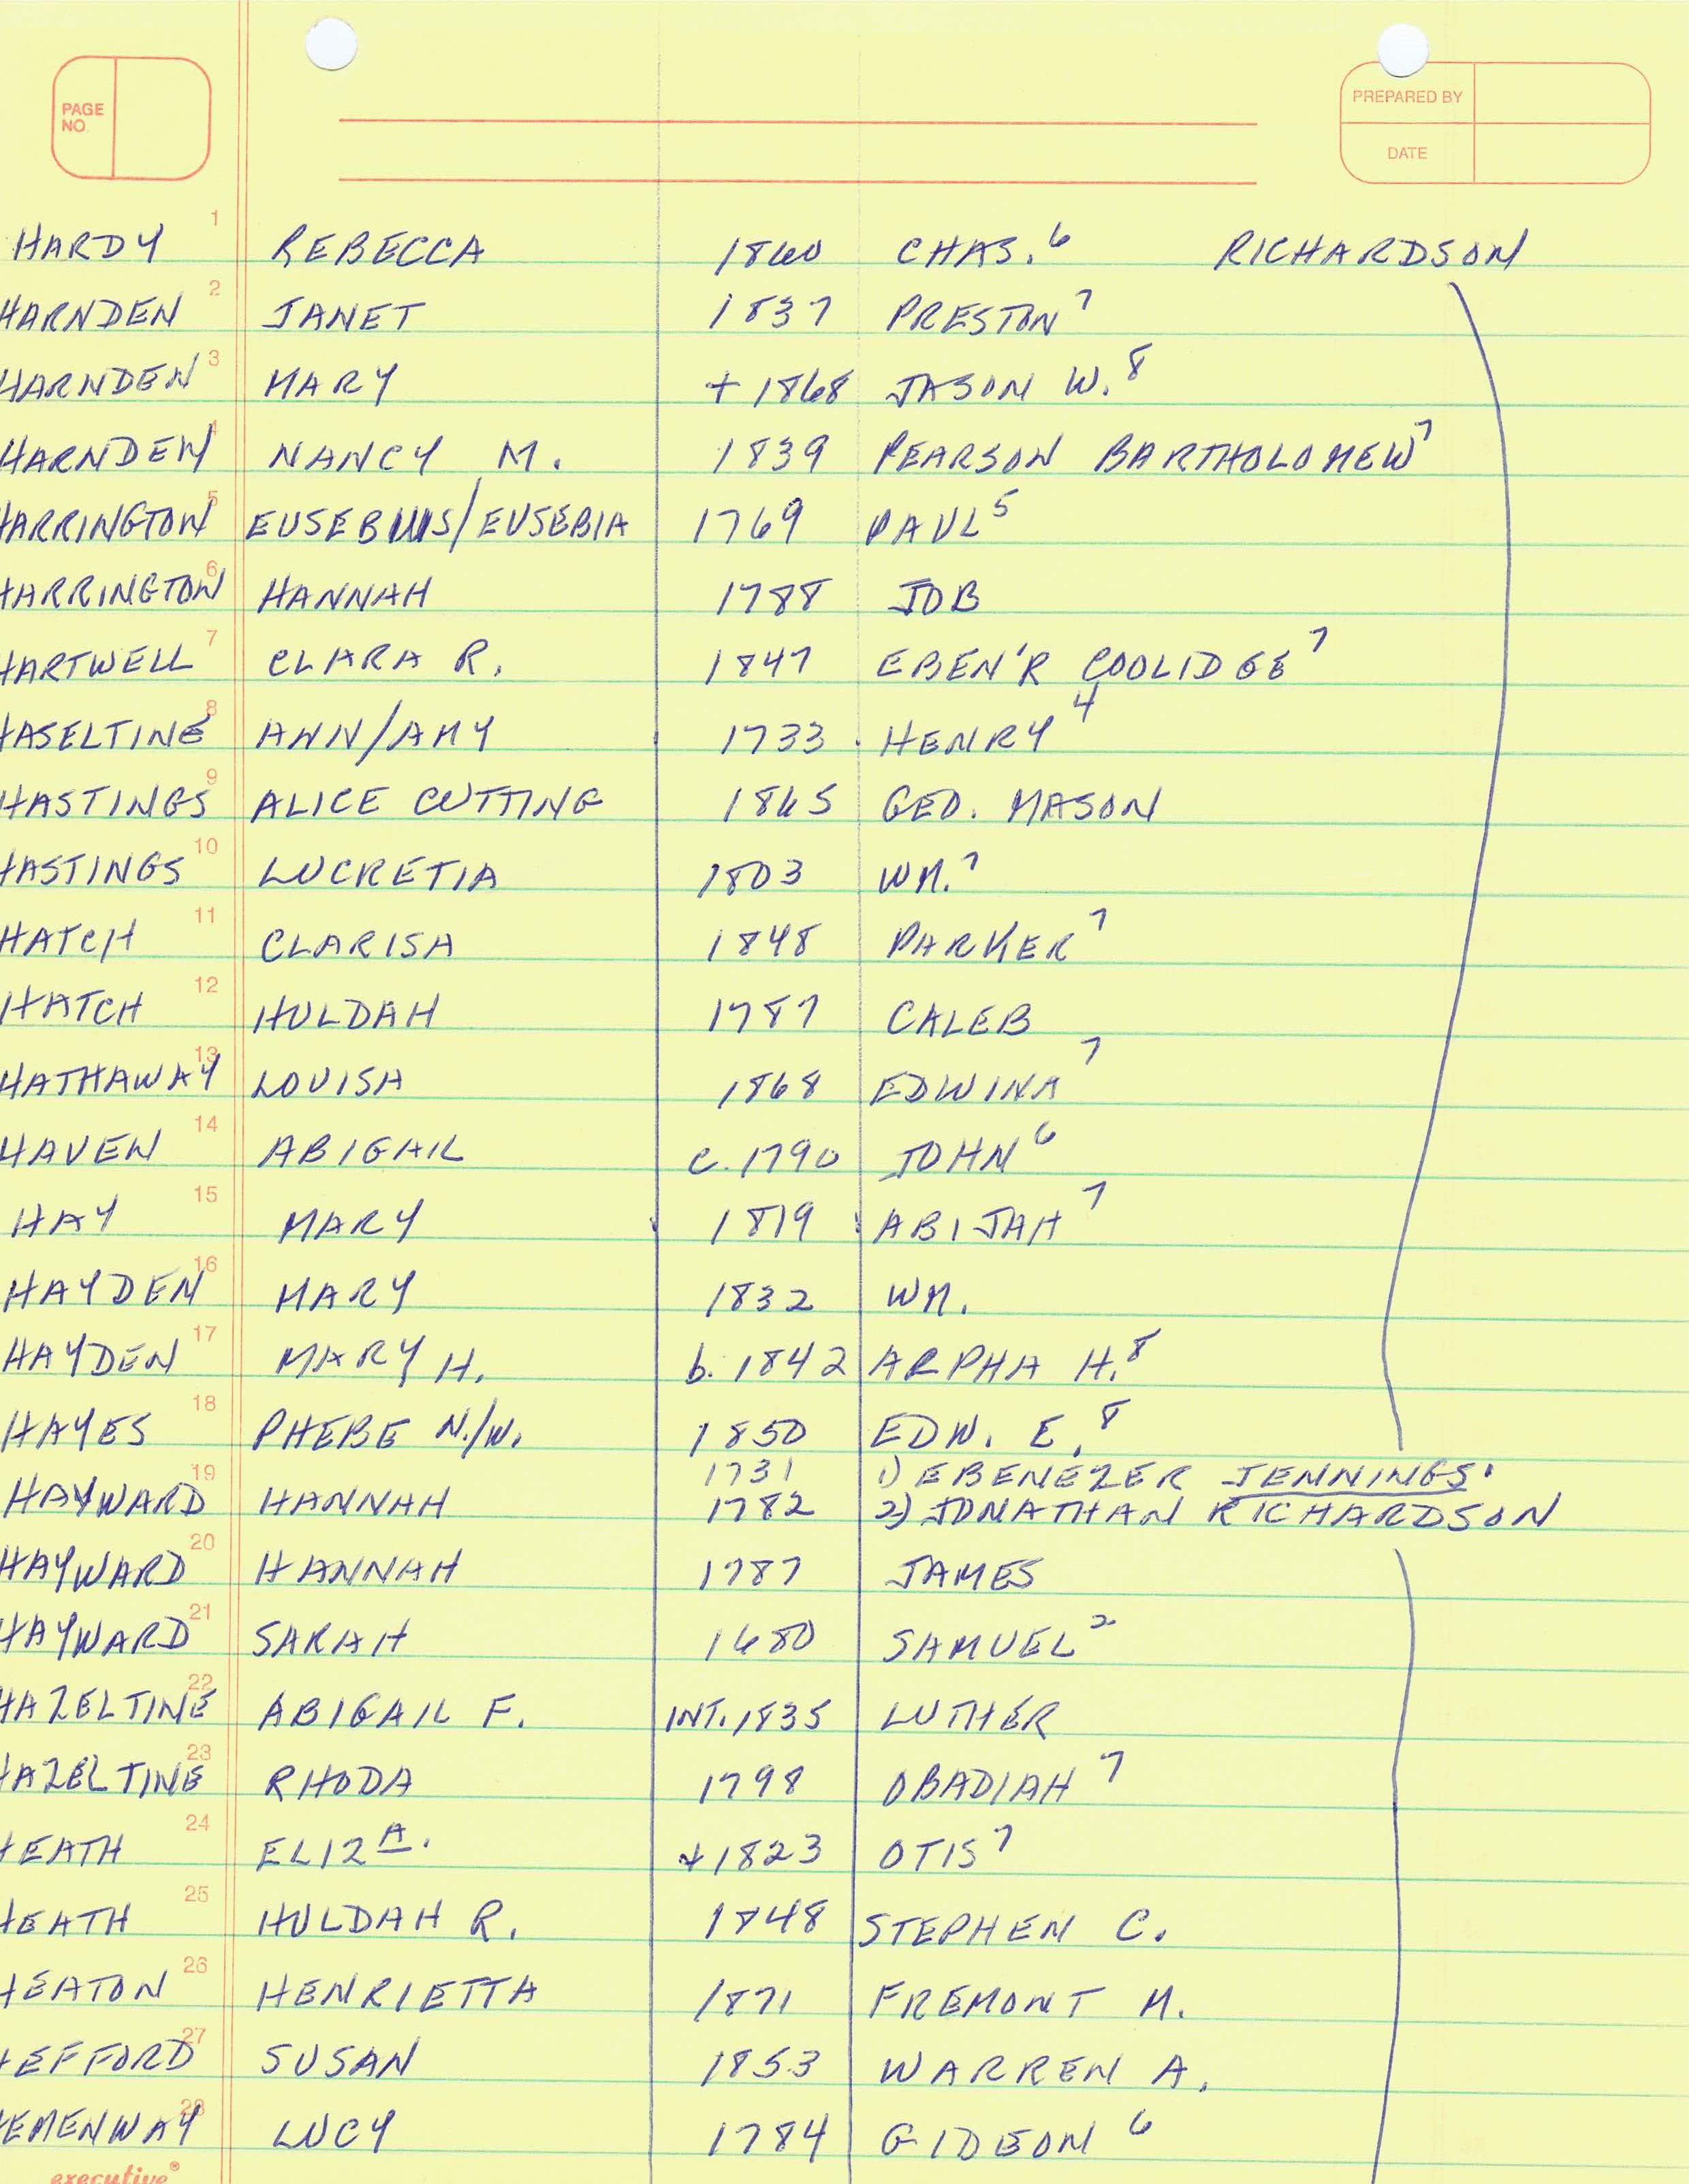 PAGE NO.
PREPARED BY
DATE
1 HARDY REBECCA 1860 CHAS.⁶ RICHARDSON
2 HARNDEN JANET 1837 PRESTON⁷
3 HARNDEN MARY + 1868 JASON W.⁸
4 HARNDEN NANCY M. 1839 PEARSON BARTHOLOMEW⁷
5 HARRINGTON EUSEBIUS/EUSEBIA 1769 PAUL⁵
6 HARRINGTON HANNAH 1788 JOB
7 HARTWELL CLARA R. 1847 EBEN'R COOLIDGE⁷
8 HASELTINE ANN/AMY 1733 HENRY⁴
9 HASTINGS ALICE CUTTING 1865 GEO. MASON
10 HASTINGS LUCRETIA 1803 WM.⁷
11 HATCH CLARISA 1848 PARKER⁷
12 HATCH HULDAH 1787 CALEB
13 HATHAWAY LOUISA 1868 EDWINA⁷
14 HAVEN ABIGAIL c. 1790 JOHN⁶
15 HAY MARY 1819 ABIJAH⁷
16 HAYDEN MARY 1832 WM.
17 HAYDEN MARY H. b. 1842 ARPHA H.⁸
18 HAYES PHEBE N./W. 1850 EDW. E.⁸
19 HAYWARD HANNAH 1731 1) EBENEZER JENNINGS.
1782 2) JONATHAN RICHARDSON
20 HAYWARD HANNAH 1787 JAMES
21 HAYWARD SARAH 1680 SAMUEL²
22 HAZELTINE ABIGAIL F. INT. 1835 LUTHER
23 HAZELTINE RHODA 1798 OBADIAH⁷
24 HEATH ELIZA. + 1823 OTIS⁷
25 HEATH HULDAH R. 1848 STEPHEN C.
26 HEATON HENRIETTA 1871 FREMONT M.
27 HEFFORD SUSAN 1853 WARREN A.
28 HEMENWAY LUCY 1784 GIDEON⁶
executive®